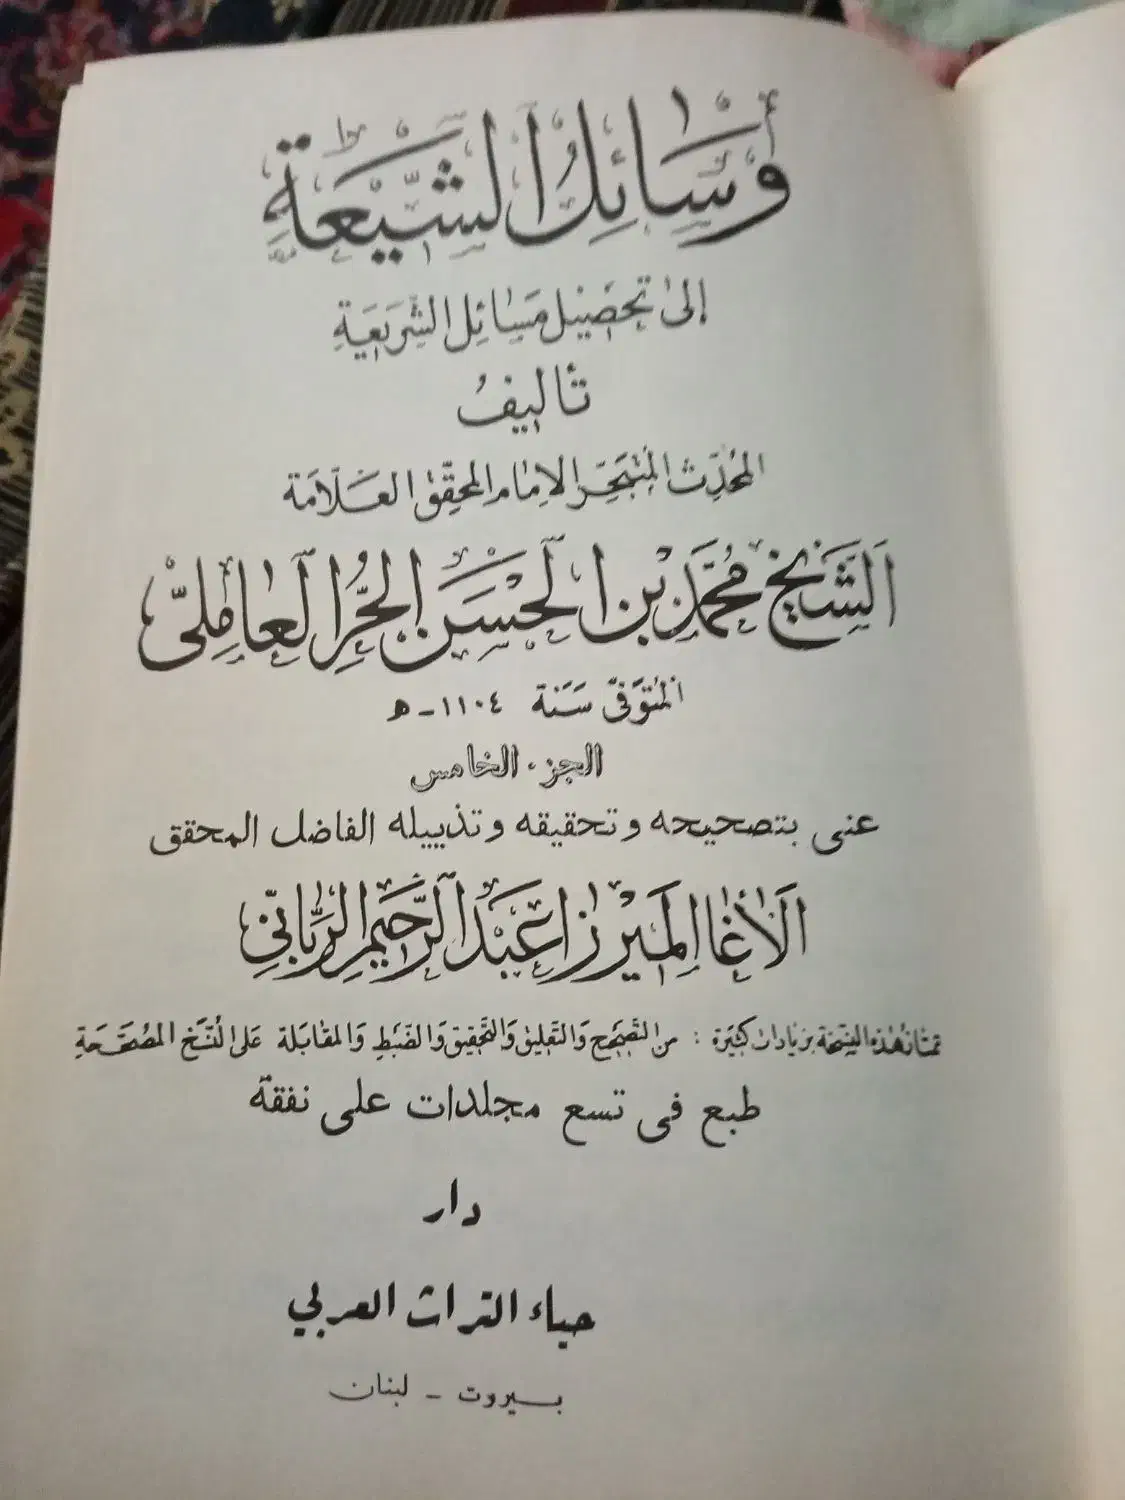 وَسَائِلُ الشِّيعَةِ
إلى تحصيل مَسَائِل الشَّرِيعَةِ
تأليف
المحَدِّث المتبَحِّر الإمام المحقِّق العَلّامَة
الشَّيخ مُحمَّد بن الحَسَن الحُرّ العامِليّ
المتوَفّى سَنَة ١١٠٤ -ه
الجزء الخامس
عنى بتصحيحه وتحقيقه وتذييله الفاضل المحقق
الأغا الميرزا عَبد الرَّحيم الرَّبّاني
تمتاز هذه النسخة بزيادات كثيرة : من التَّصحيح والتَّعليق والتَّحقيق والضَبط والمقابلة على النّسَخ المصَحَّحَة
طبع فى تسع مجلدات على نفقة
دار
حياء التراث العربي
بيروت - لبنان